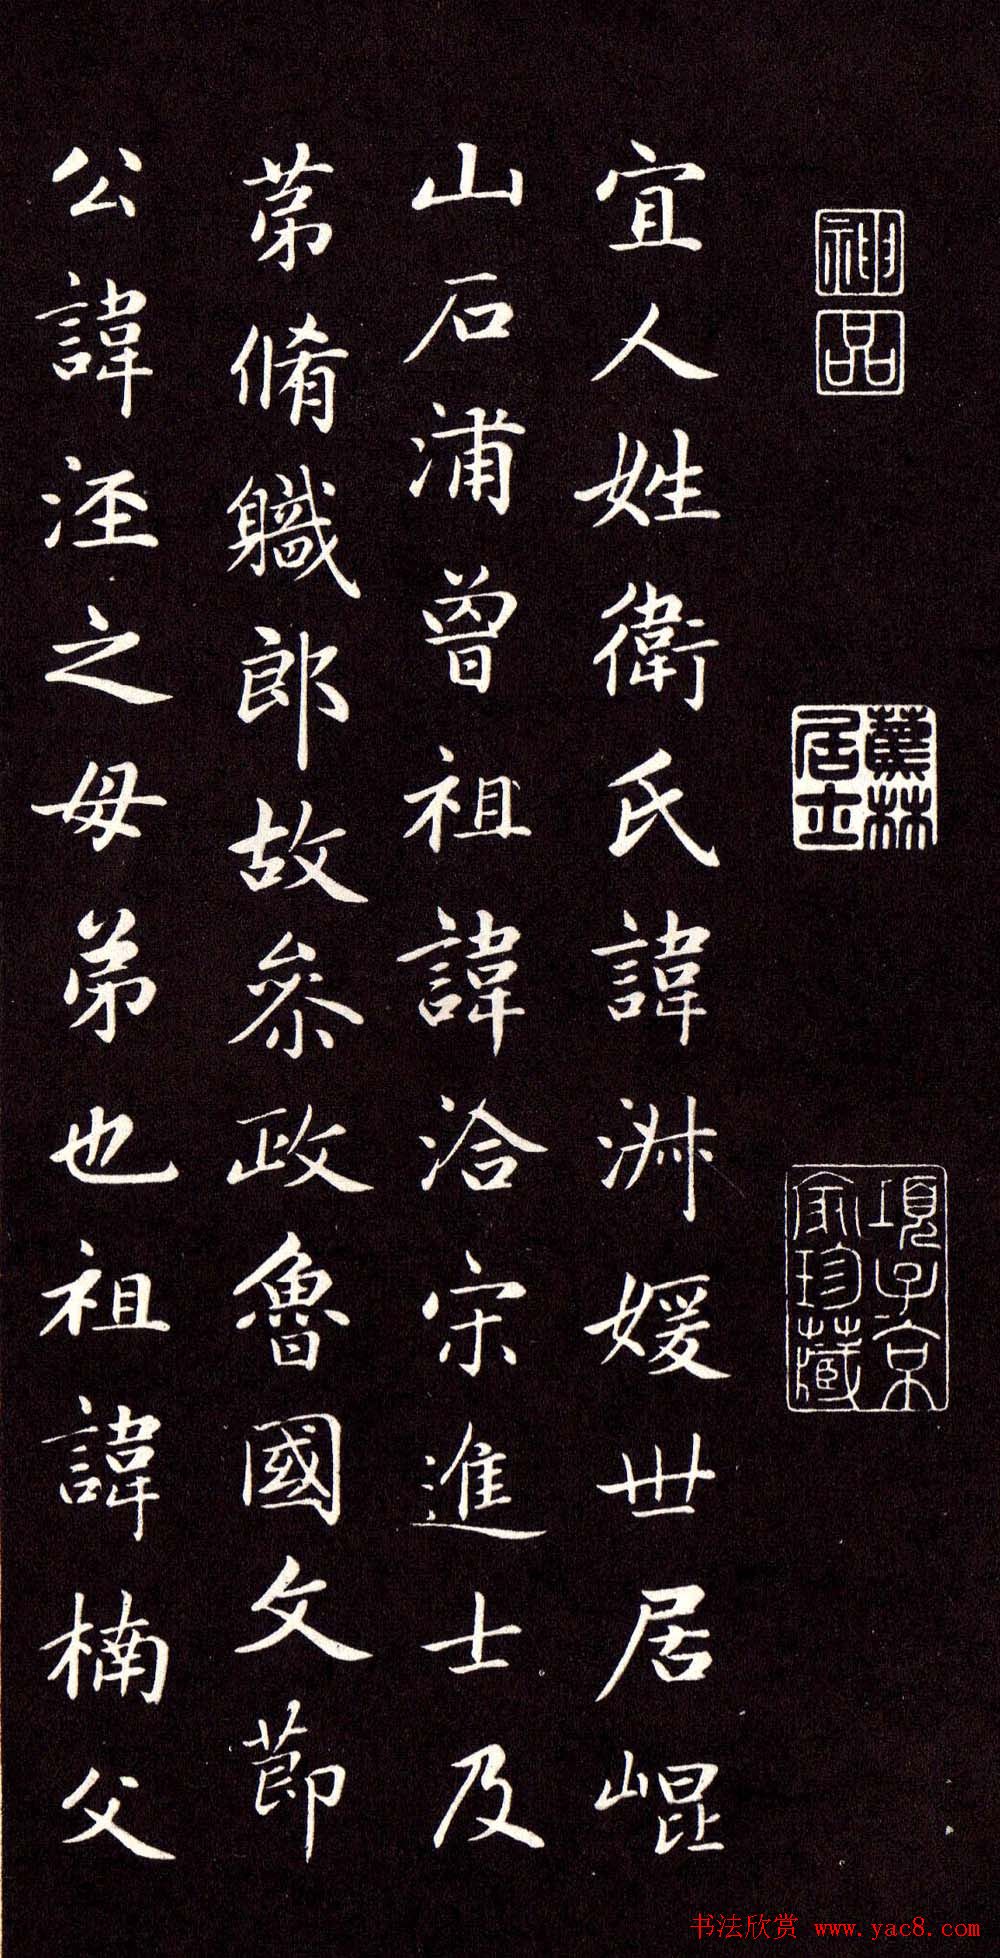 神品
蕉林居士
項子京家珍藏
宜人姓衛氏諱淋媛世居崐
山石浦曾祖諱洽宋進士及
苐脩軄郎故叅政魯國文莭
公諱涇之母弟也祖諱楠父
书法欣赏 www.yac8.com